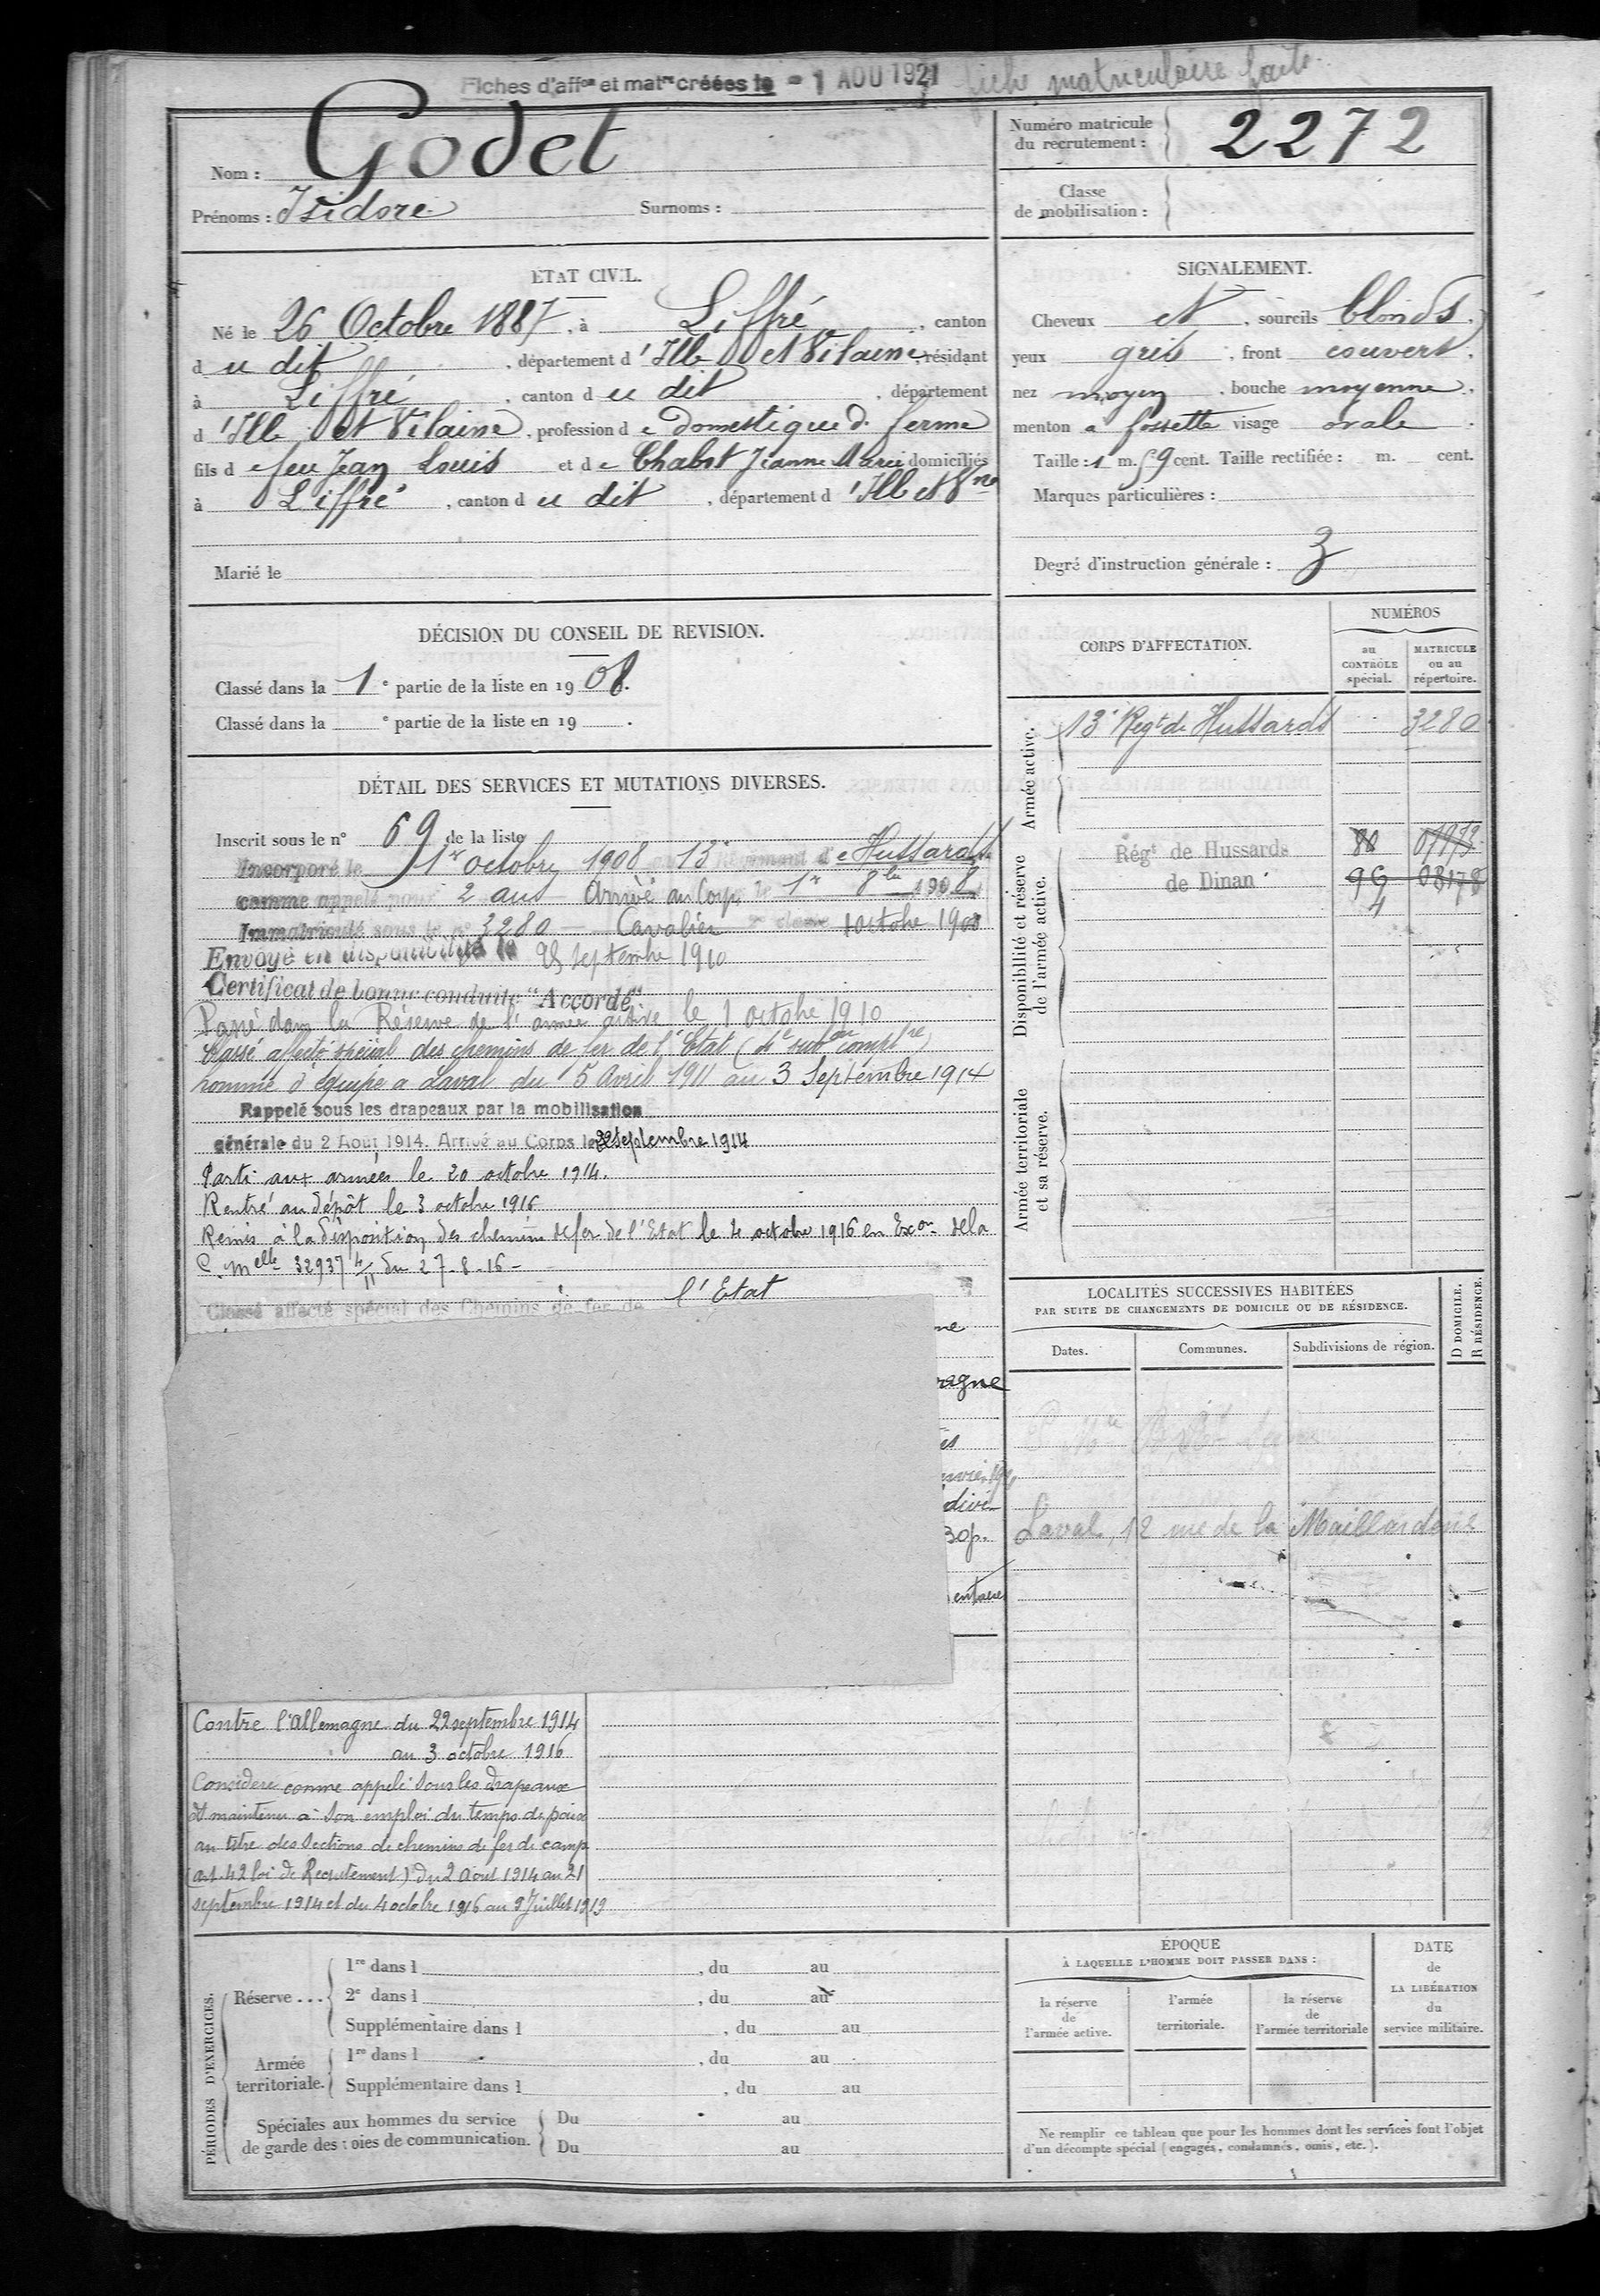 Fiches d'affon et matre créées le - 1 AOU 1921
fiche matriculaire faite
Nom : Godet
Prénoms : Isidore Surnoms :
Numéro matricule du recrutement : 2272
Classe de mobilisation :
ÉTAT CIVIL.
Né le 26 Octobre 1887, à Liffré, canton
du dit, département d'Ille et Vilaine, résidant
à Liffré, canton du dit, département
d'Ille et Vilaine, profession de domestique d. ferme
fils de feu Jean Louis et de Chabot Jeanne Marie domiciliés
à Liffré, canton du dit, département d'Ille et Vne
Marié le
SIGNALEMENT.
Cheveux et, sourcils blonds.
yeux gris, front couvert.
nez moyen, bouche moyenne.
menton à fossette visage ovale.
Taille : 1 m. 59 cent. Taille rectifiée : m. cent.
Marques particulières :
Degré d'instruction générale : 3
DÉCISION DU CONSEIL DE REVISION.
Classé dans la 1e partie de la liste en 1908.
Classé dans la e partie de la liste en 19 .
DÉTAIL DES SERVICES ET MUTATIONS DIVERSES.
Inscrit sous le n° 69 de la liste
Incorporé le 1er octobre 1908 au 13e Régiment de Hussards
comme appelé pour 2 ans Arrivé au Corps le 1er 8bre 1908
Immatriculé sous le n° 3280 — Cavalier 2e classe 1 octobre 1908
Envoyé en disponibilité le 25 septembre 1910
Certificat de bonne conduite "Accordé"
Passé dans la Réserve de l'armée active le 1 octobre 1910
Classé affecté spécial des chemins de fer de l'Etat (4e subon complre)
homme d'équipe à Laval du 5 Avril 1911 au 3 Septembre 1914
Rappelé sous les drapeaux par la mobilisation
générale du 2 Août 1914. Arrivé au Corps le 22 septembre 1914
Parti aux armées le 20 octobre 1914.
Rentré au dépôt le 3 octobre 1916
Remis à la disposition des chemins de fer de l'Etat le 4 octobre 1916 en Exon de la
C. Melle 32937 4/11 du 27-8-16-
Classé affecté spécial des Chemins de fer de l'Etat
ne
ragne
es
divi-
30p.
entaire
Contre l'Allemagne du 22 septembre 1914
au 3 octobre 1916
Considéré comme appelé sous les drapeaux
et maintenu à son emploi du temps de paix
au titre des Sections de chemins de fer de camp
(art. 42 loi de Recrutement) du 2 Août 1914 au 21
septembre 1914 et du 4 octobre 1916 au 9 Juillet 1919
CORPS D'AFFECTATION.
NUMÉROS
au CONTRÔLE spécial.
MATRICULE ou au répertoire.
Armée active.
13e Regt de Hussards 3280
Disponibilité et réserve de l'armée active.
Régt de Hussards 88 01973
de Dinan 9G 4 03178
Armée territoriale et sa réserve.
LOCALITÉS SUCCESSIVES HABITÉES
PAR SUITE DE CHANGEMENTS DE DOMICILE OU DE RÉSIDENCE.
D DOMICILE. R RÉSIDENCE.
Dates. Communes. Subdivisions de région.
Laval, 12 rue de la Maillarderie
PÉRIODES D'EXERCICES.
Réserve ...
1re dans l , du au
2e dans l , du au
Supplémentaire dans l , du au
Armée territoriale.
1re dans l , du au
Supplémentaire dans l , du au
Spéciales aux hommes du service
de garde des voies de communication.
Du au
Du au
ÉPOQUE
À LAQUELLE L'HOMME DOIT PASSER DANS :
la réserve de l'armée active.
l'armée territoriale.
la réserve de l'armée territoriale
DATE de LA LIBÉRATION du service militaire.
Ne remplir ce tableau que pour les hommes dont les services font l'objet
d'un décompte spécial (engagés, condamnés, omis, etc.).